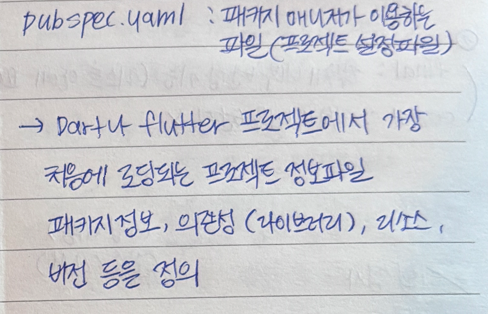 pubspec.yaml : 패키지 매니저가 이용하는
파일 (프로젝트 설정파일)
→ Dart나 flutter 프로젝트에서 가장
처음에 로딩되는 프로젝트 정보파일
패키지정보, 의존성 (라이브러리), 리소스,
버전 등을 정의